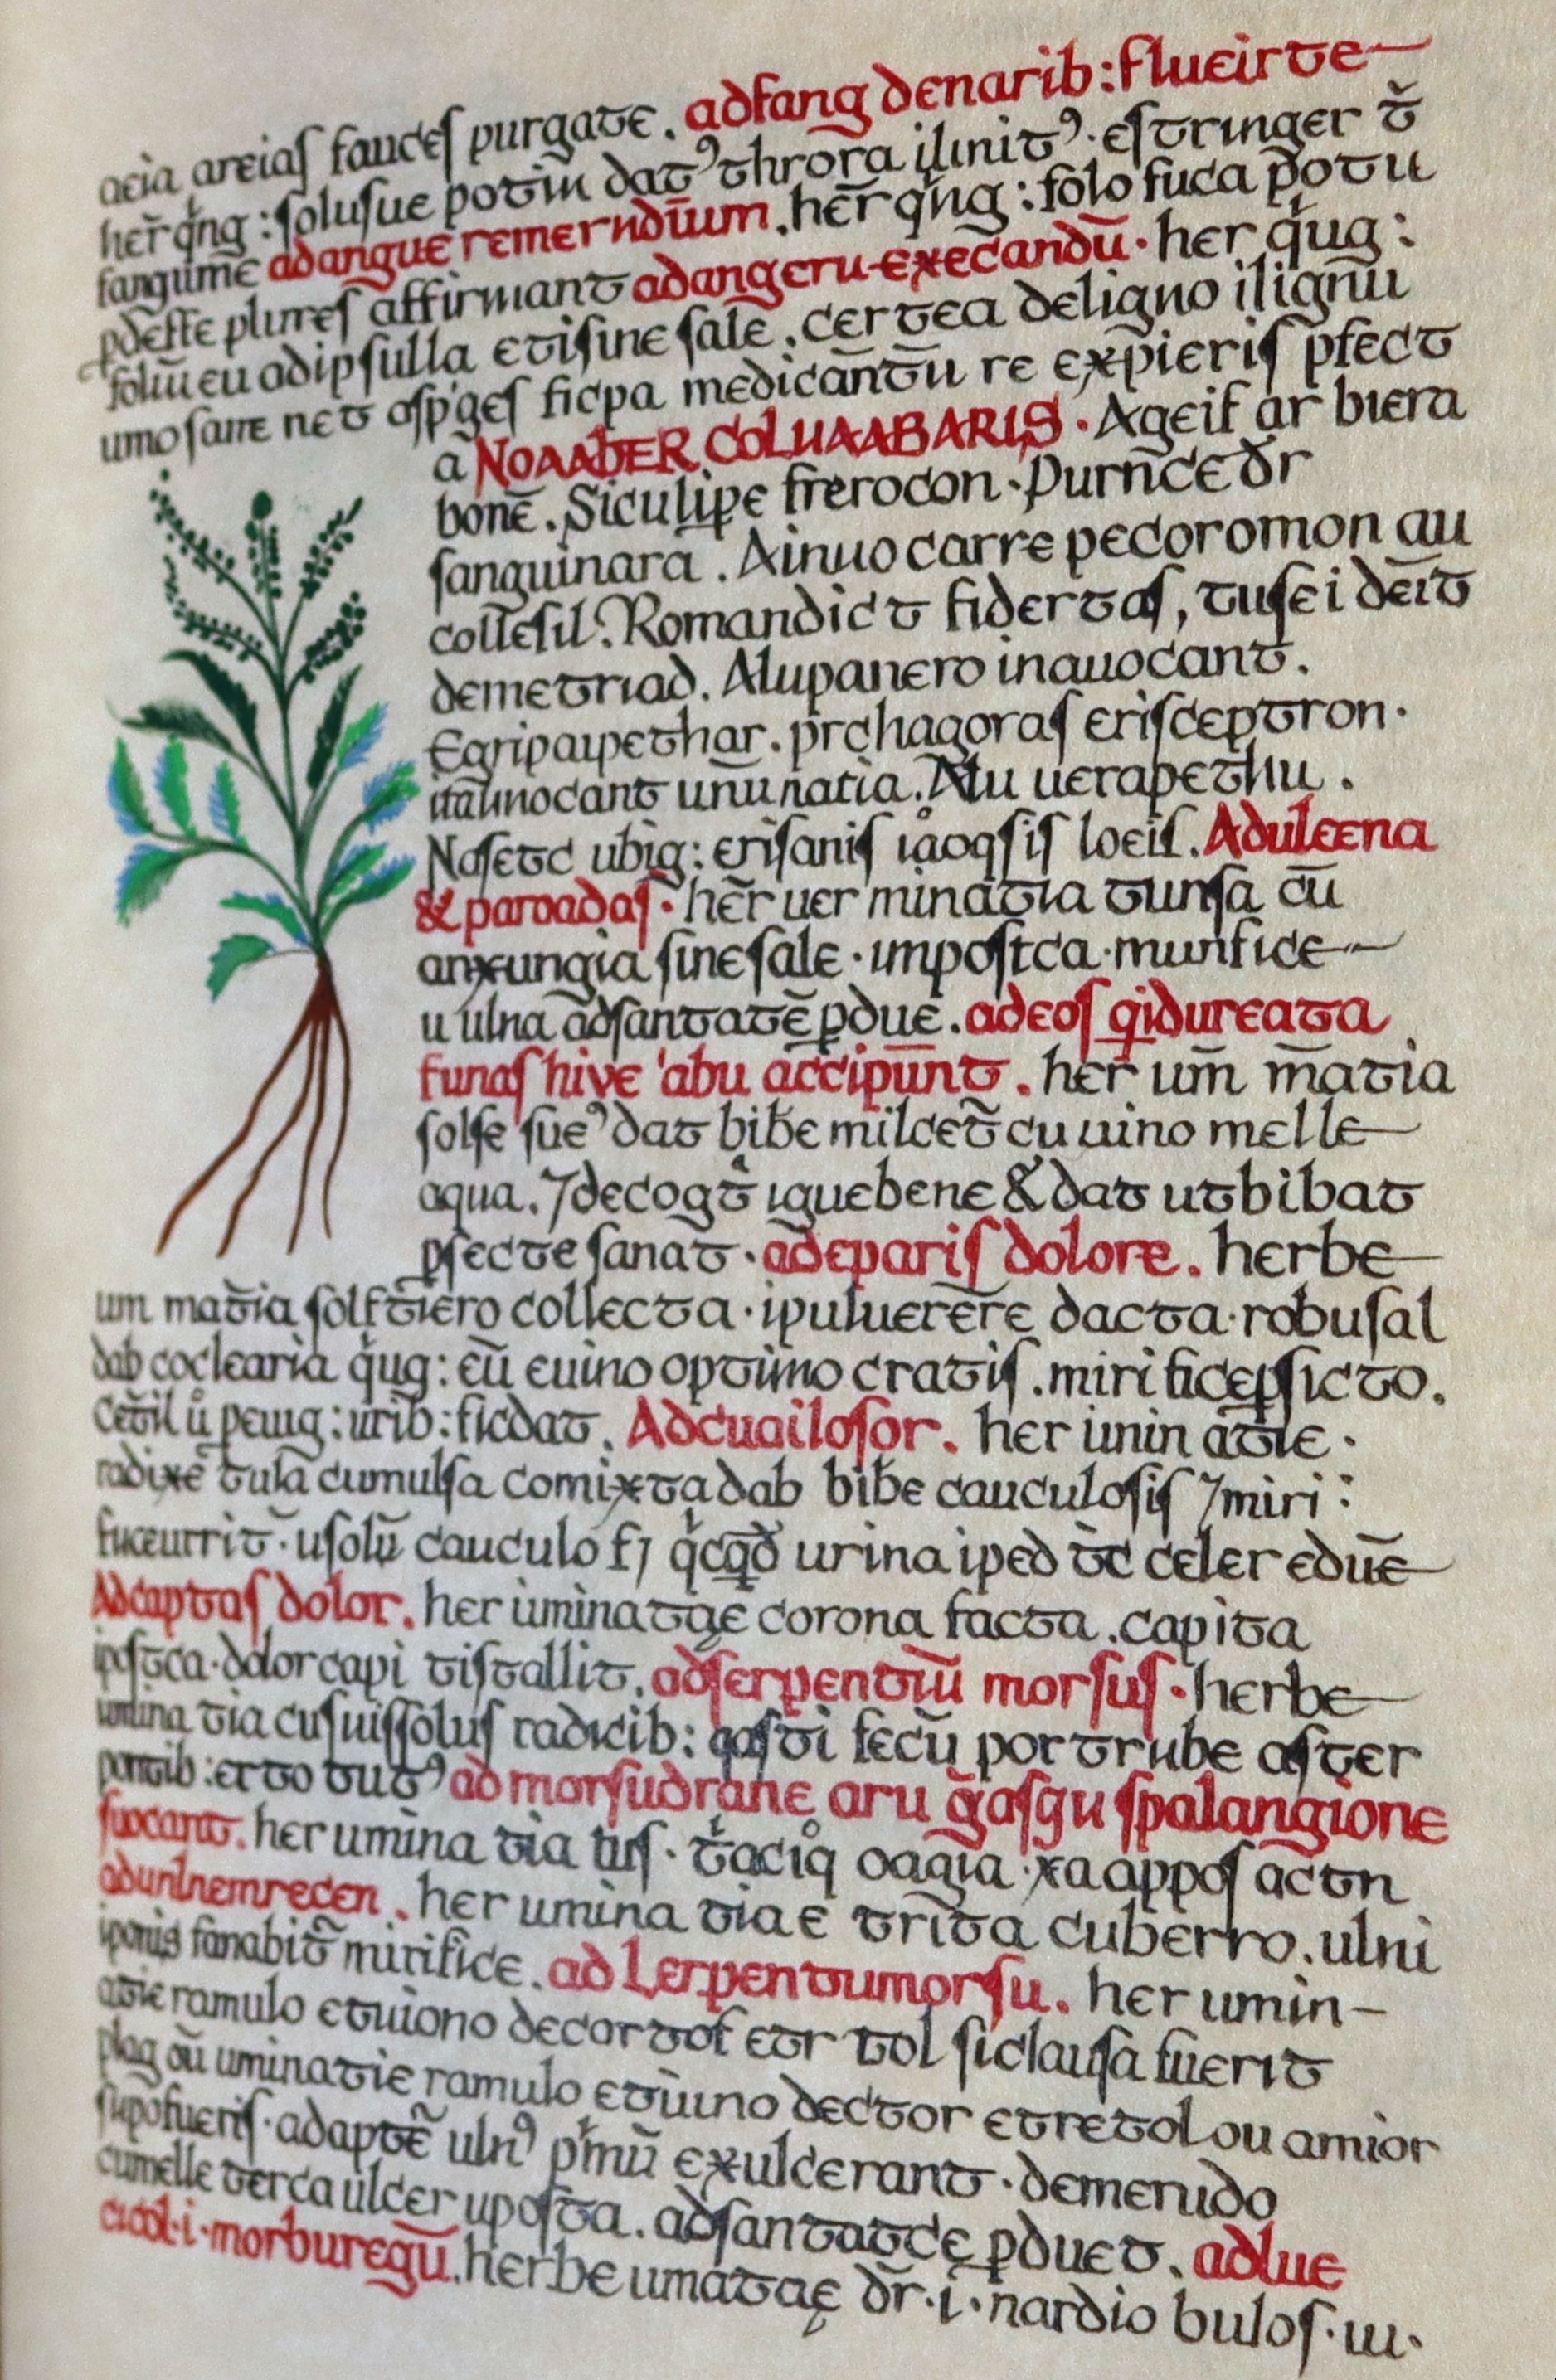 aeia areias fauces purgate. adfang denarib: flueirte
her̄ qͥng: solusue potim̄ datꝰ throra ilinitꝰ. estringer t̄
fangume adangue remerndūum. her̄ qͥng: folo fuca potu
pdeffe plures affirmant adangeru execandū. her qͥug:
foluū eu adip sulla etisine sale. certea deligno ilignū
umo sarre net aspges ficpa medicantū re expieris pfect
a NOAAbER COLUAABARIS. Ageif ar biera
bonē. Siculipe frerocon. Purnce dr
sanguinara. Ainuo carre pecoromon au
collesil. Romandict fidertas, tusei deit
demetriad. Alupanero inauocant.
Egripaipethar. prchagoras erisceptron.
itaūnocant unū natia. Atu uerapethu.
Nasetc ubig: erisanis iaoqsis loeis. Aduleena
& paroadas. her̄ uer minatia tunsa cū
anxungia sine sale. impostca. munfice
u ulna adsantatē pdue. adeos qidureata
funas hive 'abu accipunt. her um̄ matia
solse sueꝰ dat bibe milcet̄ cu uino melle
aqua. ⁊decogt iguebene & dat utbibat
psecte sanat. adeparis dolore. herbe
um matia solftiero collecta. ipuluerere dacta. robusal
dab coclearia qͥug: eū euino optimo cratis. mirificepsicto.
Cetil ů peuig: urib: ficdat. Adcuailosor. her imin atie.
radixe tula cumulsa comixta dab bibe cauculosis ⁊miri:
fuceurrit. usolū cauculo f⁊ qͥcqd urina iped tc celer eduē
Adcaptas dolor. her iuminatae corona facta. capita
ipstca. dolor capi tistallit. adserpentiū morsus. herbe
umina tia cusuissolus radicib: qasti fecū portrube aster
pontib: erto tutꝰ ad morsudrane aru gasgu spalangione
suocant. her umina tia tus. taciq oagia. xa appos actn
adunlnemrecen. her umina tiae trita cuberro. ulni
iponis fanabit̄ mirifice. ad lerpentumorsu. her umin-
atie ramulo etuiono decortof etr tol siclausa fuerit
plag oū uminatie ramulo etiuino dector etretol ou amior
supofueris. adaptē ulnꝰ pͥmū exulcerant. demerudo
cumelle terca ulcer uposta. adsantatce pduet. adlue
cicol.i.morburegū. herbe umatae dr.i.nardio bulos.iu.